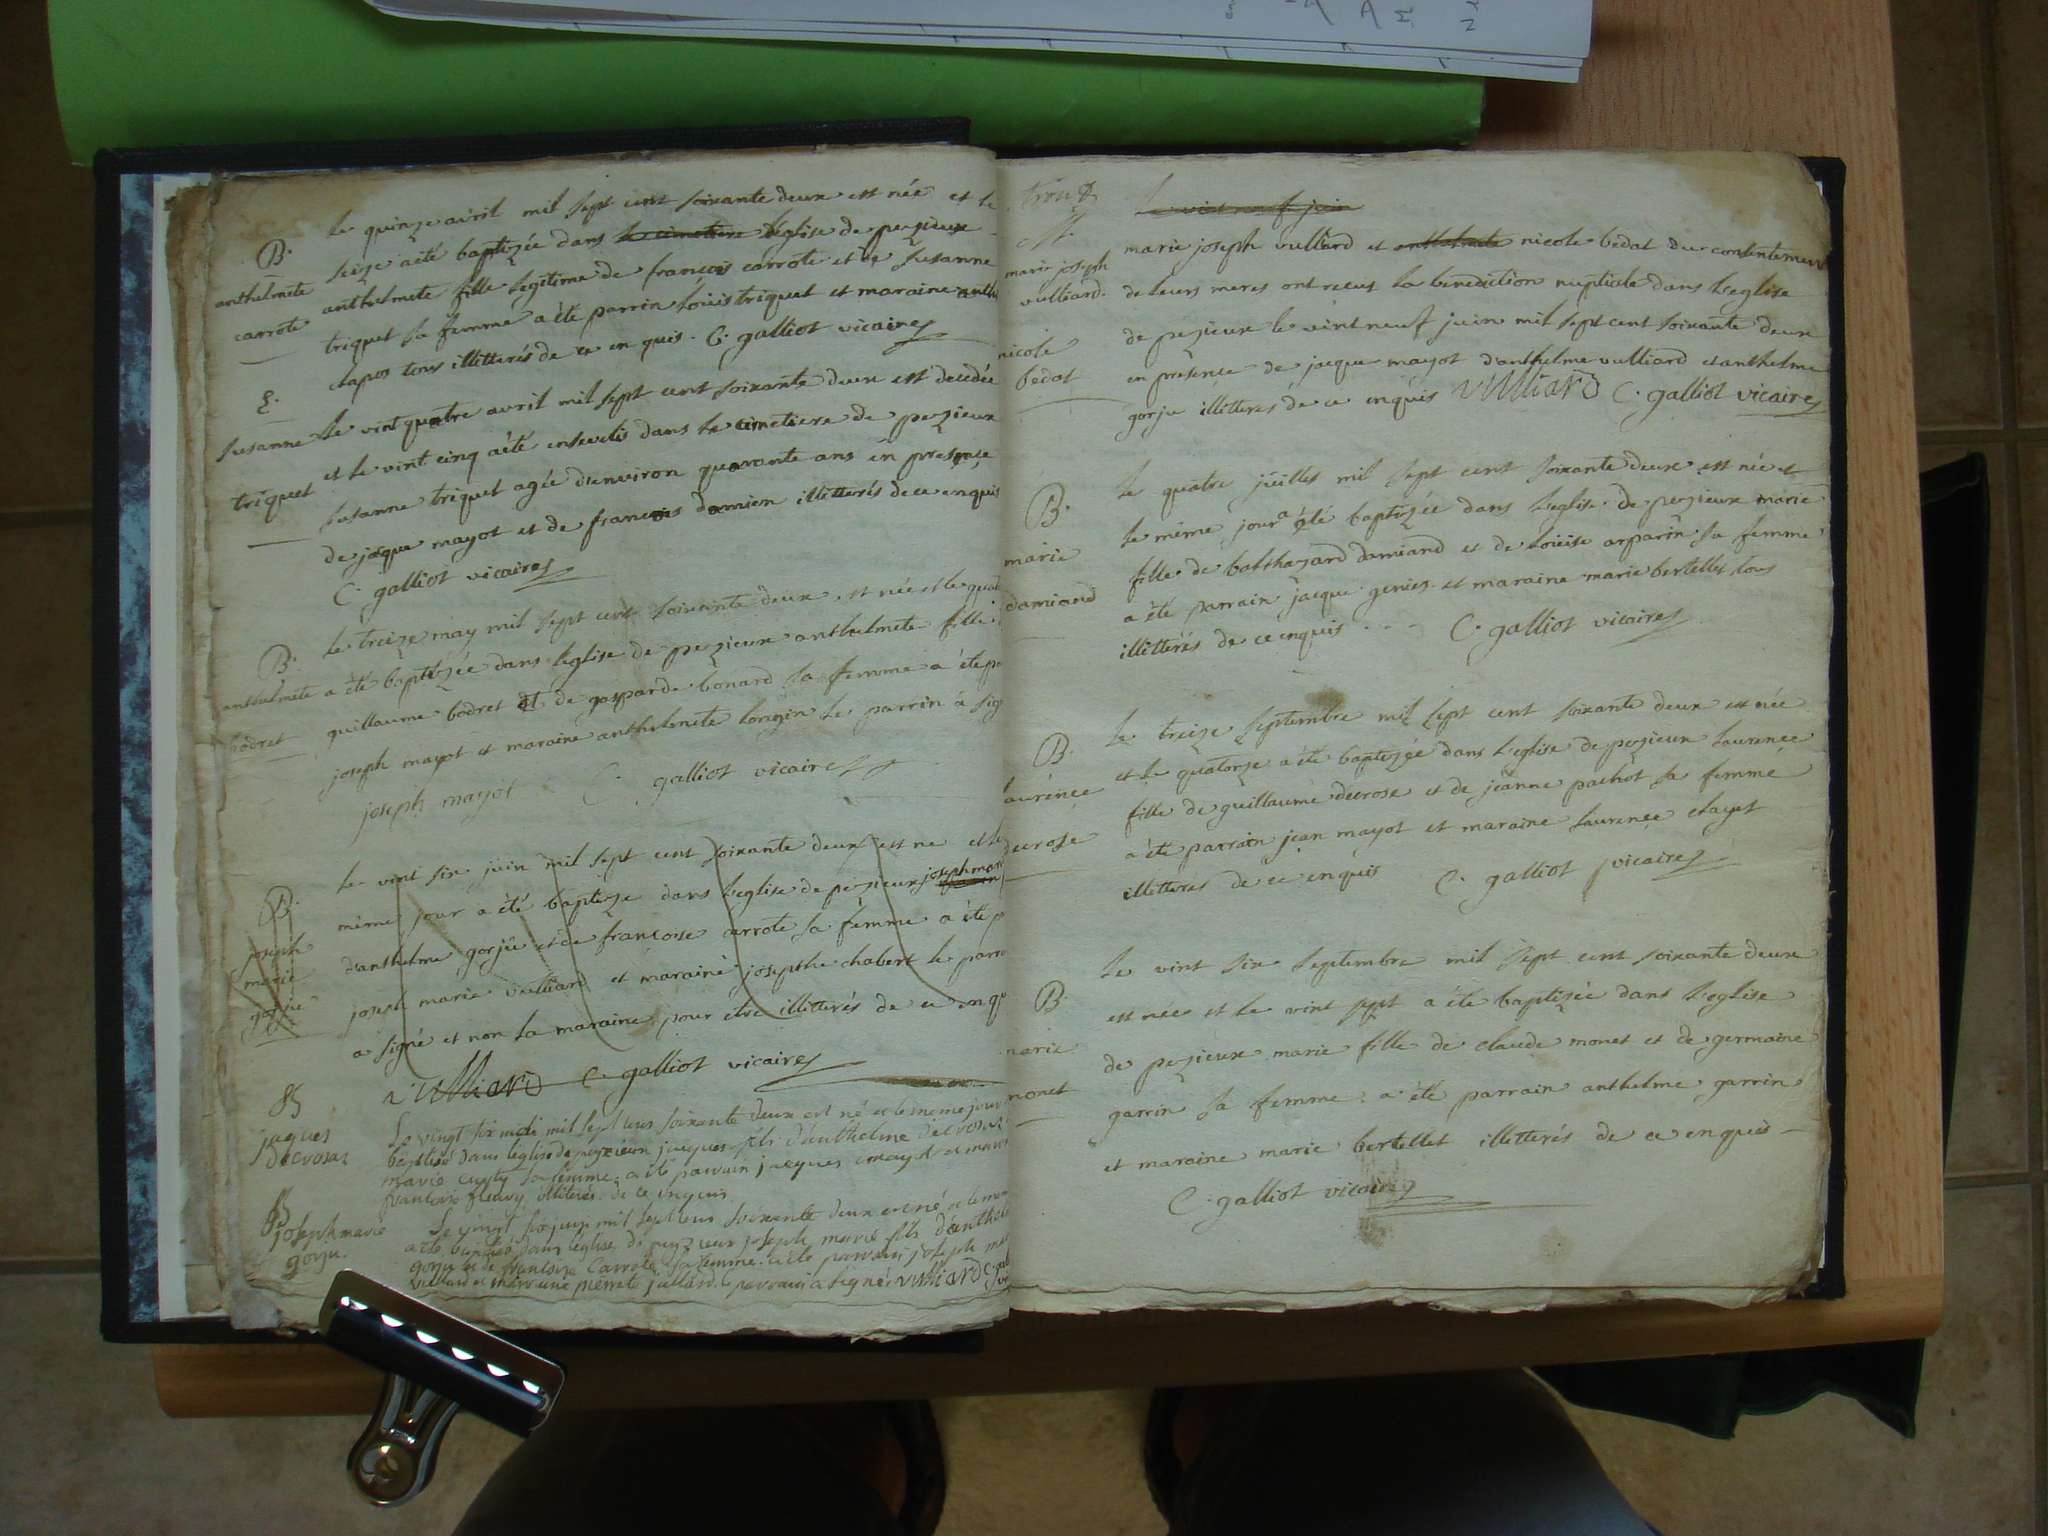 B.
anthelmete
carrote
le quinze avril mil sept cent soixante deux est née et le
seize a été baptizée dans le cimetiere l'eglise de pezieux
anthelmete fille legitime de françois carrote et de susanne
triquet sa femme a été parrin louis triquet et maraine
clapos tous illitterés de ce enquis. C. galliot vicaire
S.
susanne
triquet
le vint quatre avril mil sept cent soixante deux est decedée
et le vint cinq a été ensevelis dans le cimetiere de pezieux
susanne triquet agée d'environ quarante ans en presence
de jaque mayot et de francois damien illitterés de ce enquis
C. galliot vicaire
B.
anthelmete
bodret
le treize may mil sept cent soixante deux est née et le
a été baptizée dans l'eglise de pezieux anthelmete fille
guillaume bodret et de gasparde bonard sa femme a été
joseph mayot et maraine anthelmete longin le parrin a
joseph mayot C. galliot vicaire
B.
joseph
marie
gorju
le vint six juin mil sept cent soixante deux est ne et le
même jour a été baptize dans l'eglise de pezieux joseph
d'anthelme gorju et de francoise carrote sa femme a été
joseph marie vulliard et maraine josepthe chabert le
a signé et non la maraine pour etre illitterés de ce
vulliard C. galliot vicaire
B
jaques
decrosaz
Le vingt six mil sept cens soixante deux est né et le meme jour
baptisé dans l'eglise de pezieux jacques fils d'anthelme decrosaz
marie sa femme. a été parrain jacques mayot et
francoise fleury illiterés de ce enquis
B
joseph marie
gorju.
Le vingt six juin mil sept cens soixante deux est né et le
a été baptisé dans l'eglise de pezieux joseph marie fils d'
gorju et de francoise Carrote sa femme. a été parrain joseph
vulliard et marraine pierrete le parrain a signé. vulliard
M.
marie joseph
vulliard.
nicole
bedat
le vint neuf juin
marie joseph vulliard et nicole bedat du consentement
de leurs meres ont recus la benediction nuptiale dans l'eglise
de pezieux le vint neuf juin mil sept cent soixante deux
en presence de jaque mayot d'anthelme vulliard et anthelme
gorju illitterés de ce enquis vulliard C. galliot vicaire
B.
marie
damiand
le quatre juillet mil sept cent soixante deux est née et
le même jour a été baptizée dans l'eglise de pezieux marie
fille de balthazard damiand et de louise arparin sa femme
a été parrain jacque genies et maraine marie bertellet tous
illitterés de ce enquis - - - C. galliot vicaire
B.
laurence
decrose
le treize septembre mil sept cent soixante deux est née
et le quatorze a été baptizée dans l'eglise de pezieux laurence
fille de guillaume decrose et de jeanne pachot sa femme
a été parrain jean mayot et maraine laurence clayet
illitterés de ce enquis C. galliot vicaire
B.
marie
monet
le vint six septembre mil sept cent soixante deux
est née et le vint sept a été baptizée dans l'eglise
de pezieux marie fille de claude monet et de germaine
garrin sa femme. a été parrain anthelme garrin
et maraine marie bertellet illitterés de ce enquis
C. galliot vicaire